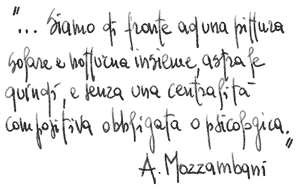 "... Siamo di fronte ad una pittura
solare e notturna insieme, astrale
quindi, e senza una centralità
compositiva obbligata o psicologica."
A. Mozzambani